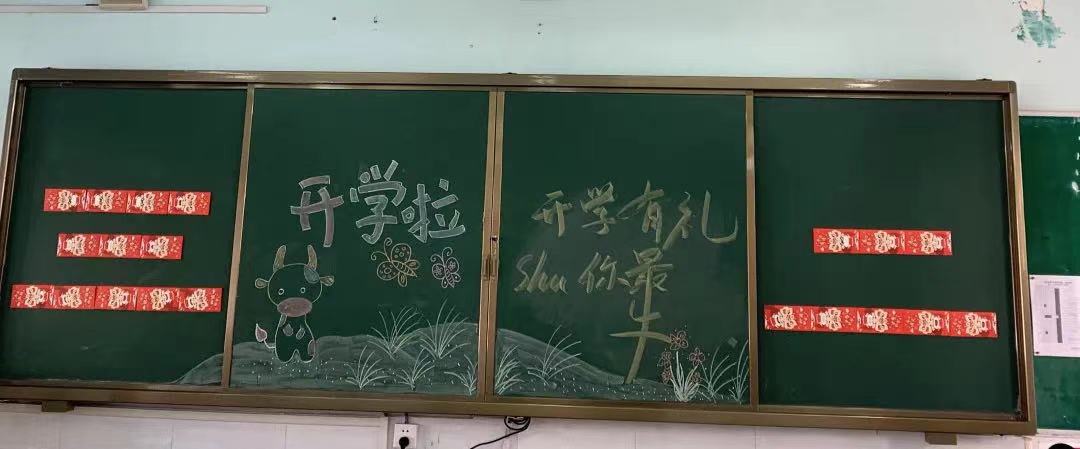 开学啦
开学有礼
Shu你最
牛